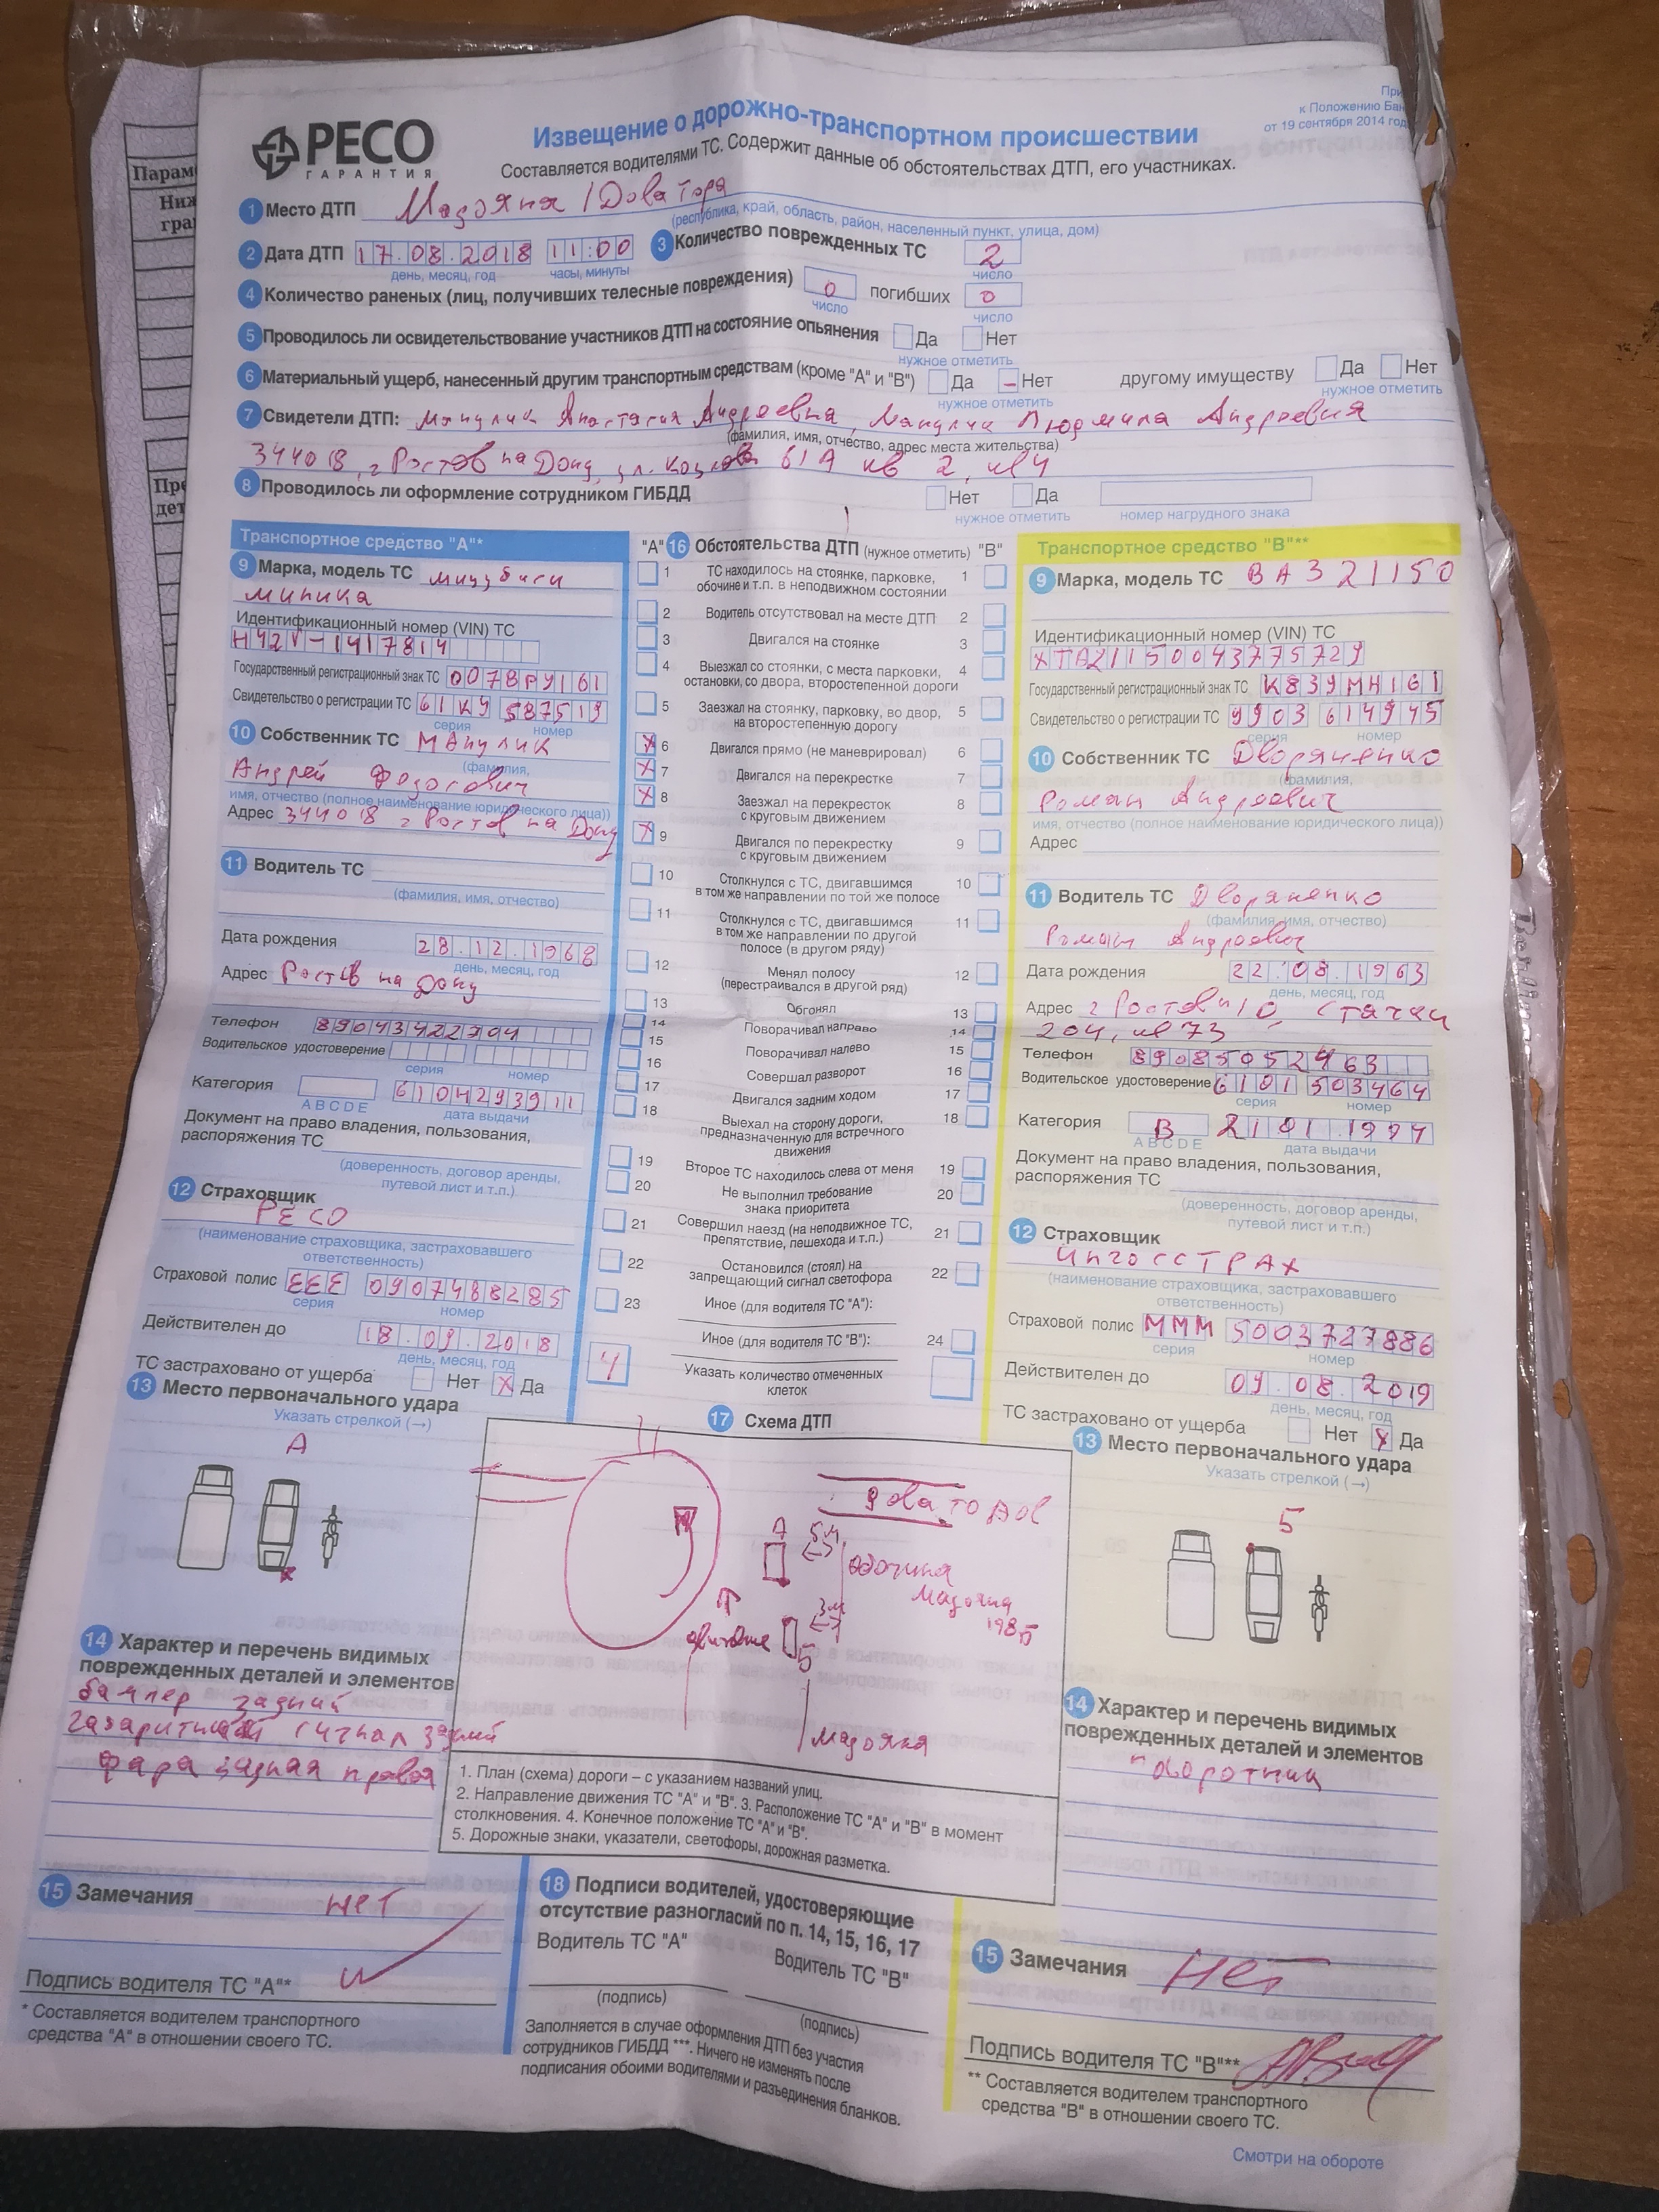 При
к Положению Бан
от 19 сентября 2014 год
РЕСО
ГАРАНТИЯ
Извещение о дорожно-транспортном происшествии
Составляется водителями ТС. Содержит данные об обстоятельствах ДТП, его участниках.
1 Место ДТП Мадояна / Доватора
(республика, край, область, район, населенный пункт, улица, дом)
2 Дата ДТП 17.08.2018 11:00 3 Количество поврежденных ТС 2
день, месяц, год часы, минуты число
4 Количество раненых (лиц, получивших телесные повреждения) 0 погибших 0
число число
5 Проводилось ли освидетельствование участников ДТП на состояние опьянения Да Нет
нужное отметить
6 Материальный ущерб, нанесенный другим транспортным средствам (кроме "А" и "В") Да Нет другому имуществу Да Нет
нужное отметить нужное отметить
7 Свидетели ДТП: Манулик Анастасия Андреевна, Манулик Людмила Андреевна
(фамилия, имя, отчество, адрес места жительства)
344018, г Ростов на Дону, ул. 61А кв 2, кв 4
8 Проводилось ли оформление сотрудником ГИБДД Нет Да
нужное отметить номер нагрудного знака
Транспортное средство "А"*
9 Марка, модель ТС мицубиси
миника
Идентификационный номер (VIN) ТС
H42V-1417814
Государственный регистрационный знак ТС О078РУ161
Свидетельство о регистрации ТС 61КУ 587519
серия номер
10 Собственник ТС Манулик
(фамилия,
Андрей
имя, отчество (полное наименование юридического лица))
Адрес 344018 г Ростов на Дону
11 Водитель ТС
(фамилия, имя, отчество)
Дата рождения 28.12.1968
день, месяц, год
Адрес Ростов на Дону
Телефон 89043422794
Водительское удостоверение
серия номер
Категория 6104293911
A B C D E дата выдачи
Документ на право владения, пользования,
распоряжения ТС
(доверенность, договор аренды,
путевой лист и т.п.)
12 Страховщик
РЕСО
(наименование страховщика, застраховавшего
ответственность)
Страховой полис ЕЕЕ 0907488285
серия номер
Действителен до 18.09.2018
день, месяц, год
ТС застраховано от ущерба Нет X Да
13 Место первоначального удара
Указать стрелкой (→)
А
14 Характер и перечень видимых
поврежденных деталей и элементов
бампер задний
габаритный сигнал задний
фара задняя правая
15 Замечания нет
Подпись водителя ТС "А"*
* Составляется водителем транспортного
средства "А" в отношении своего ТС.
"А" 16 Обстоятельства ДТП (нужное отметить) "В"
1 ТС находилось на стоянке, парковке, 1
обочине и т.п. в неподвижном состоянии
2 Водитель отсутствовал на месте ДТП 2
3 Двигался на стоянке 3
4 Выезжал со стоянки, с места парковки, 4
остановки, со двора, второстепенной дороги
5 Заезжал на стоянку, парковку, во двор, 5
на второстепенную дорогу
X 6 Двигался прямо (не маневрировал) 6
X 7 Двигался на перекрестке 7
X 8 Заезжал на перекресток 8
с круговым движением
X 9 Двигался по перекрестку 9
с круговым движением
10 Столкнулся с ТС, двигавшимся 10
в том же направлении по той же полосе
11 Столкнулся с ТС, двигавшимся 11
в том же направлении по другой
полосе (в другом ряду)
12 Менял полосу 12
(перестраивался в другой ряд)
13 Обгонял 13
14 Поворачивал направо 14
15 Поворачивал налево 15
16 Совершал разворот 16
17 Двигался задним ходом 17
18 Выехал на сторону дороги, 18
предназначенную для встречного
движения
19 Второе ТС находилось слева от меня 19
20 Не выполнил требование 20
знака приоритета
21 Совершил наезд (на неподвижное ТС, 21
препятствие, пешехода и т.п.)
22 Остановился (стоял) на 22
запрещающий сигнал светофора
23 Иное (для водителя ТС "А"):
Иное (для водителя ТС "В"): 24
4 Указать количество отмеченных
клеток
17 Схема ДТП
А 5м
обочина
3м
движение
Б
Мадояна
1. План (схема) дороги – с указанием названий улиц.
2. Направление движения ТС "А" и "В". 3. Расположение ТС "А" и "В" в момент
столкновения. 4. Конечное положение ТС "А" и "В".
5. Дорожные знаки, указатели, светофоры, дорожная разметка.
18 Подписи водителей, удостоверяющие
отсутствие разногласий по п. 14, 15, 16, 17
Водитель ТС "А" Водитель ТС "В"
(подпись) (подпись)
Заполняется в случае оформления ДТП без участия
сотрудников ГИБДД ***. Ничего не изменять после
подписания обоими водителями и разъединения бланков.
Транспортное средство "В"**
9 Марка, модель ТС ВАЗ 21150
Идентификационный номер (VIN) ТС
XTA21150043775729
Государственный регистрационный знак ТС К839МН161
Свидетельство о регистрации ТС 9903 614945
серия номер
10 Собственник ТС Дворяненко
(фамилия,
Роман Андреевич
имя, отчество (полное наименование юридического лица))
Адрес
11 Водитель ТС Дворяненко
(фамилия, имя, отчество)
Роман Андреевич
Дата рождения 22.08.1963
день, месяц, год
Адрес г Ростов н/Д, Стачки
204, кв 73
Телефон 89085052463
Водительское удостоверение 6101 503464
серия номер
Категория В 21 01.1994
A B C D E дата выдачи
Документ на право владения, пользования,
распоряжения ТС
(доверенность, договор аренды,
путевой лист и т.п.)
12 Страховщик
Ингосстрах
(наименование страховщика, застраховавшего
ответственность)
Страховой полис МММ 5003727886
серия номер
Действителен до 09.08.2019
день, месяц, год
ТС застраховано от ущерба Нет X Да
13 Место первоначального удара
Указать стрелкой (→)
Б
14 Характер и перечень видимых
поврежденных деталей и элементов
поворотник
15 Замечания Нет
Подпись водителя ТС "В"**
** Составляется водителем транспортного
средства "В" в отношении своего ТС.
Смотри на обороте
Парам
Ниж
гра
Пре
дет